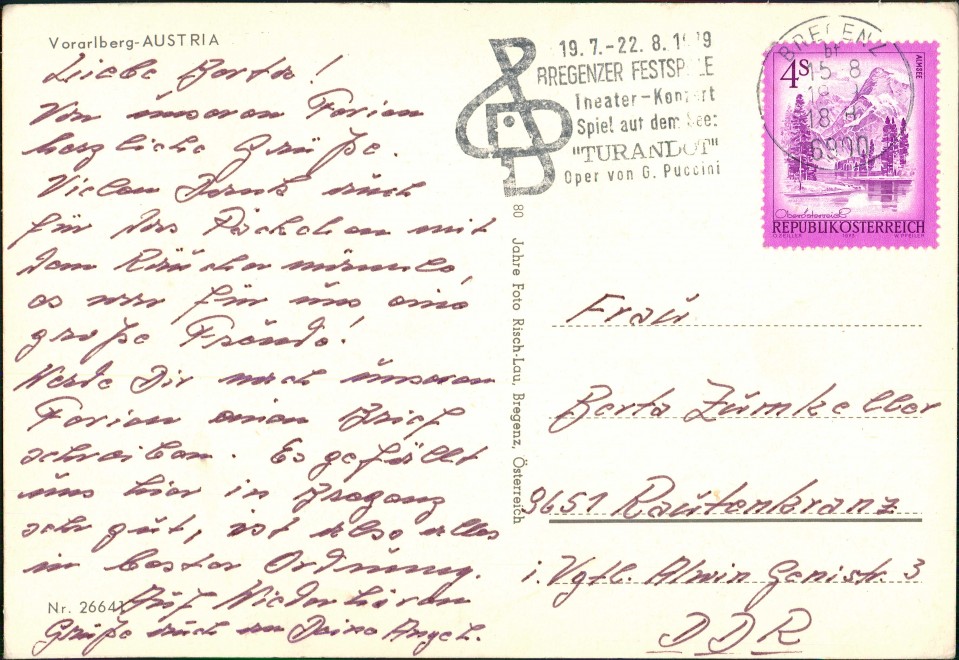 Vorarlberg-AUSTRIA
Liebe Berta!
Von unseren Ferien
herzliche Grüße.
Vielen Dank auch
für das Päckchen mit
dem Räuchermännle,
es war für uns eine
große Freude!
Werde Dir nach unseren
Ferien einen Brief
schreiben. Es gefällt
uns hier in Bregenz
sehr gut, ist also alles
in bester Ordnung.
Auf Wiederhören
Grüße auch an Deine Angeh.
Nr. 26641
80 Jahre Foto Risch-Lau, Bregenz, Österreich
19.7.-22.8.1979
BREGENZER FESTSPIELE
Theater-Konzert
Spiel auf dem See:
"TURANDOT"
Oper von G. Puccini
BREGENZ
15 8
18
6900
4S
ALMSEE
Oberösterreich
REPUBLIK ÖSTERREICH
Frau
Berta Zümkeller
9651 Rautenkranz
i. Vgtl. Alwin Genistr. 3
DDR